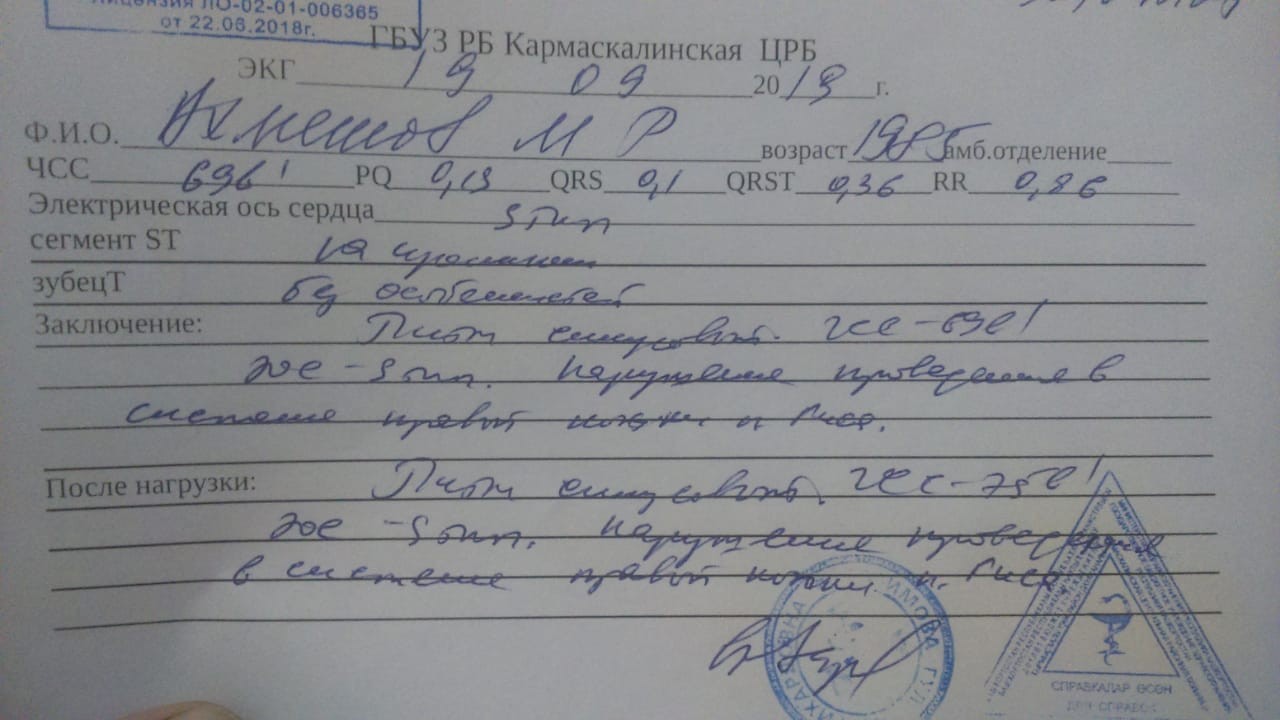 Лицензия ЛО-02-01-006365
от 22.06.2018г.
ГБУЗ РБ Кармаскалинская ЦРБ
ЭКГ 19 09 2019 г.
Ф.И.О. Ахметов М Р возраст 1985 амб.отделение
ЧСС 69 в 1' PQ 0,13 QRS 0,1 QRST 0,36 RR 0,86
Электрическая ось сердца S тип
сегмент ST на изолинии
зубецТ без особенностей
Заключение: Ритм синусовый. ЧСС-69 в 1'
ЭОС - S тип. Нарушение проведения в
системе правой ножки п. Гиса.
После нагрузки: Ритм синусовый. ЧСС-75 в 1'
ЭОС - S тип. Нарушение проведения
в системе правой ножки п. Гиса
СПРАВКАЛАР ӨСӨН
ДЛЯ СПРАВОК